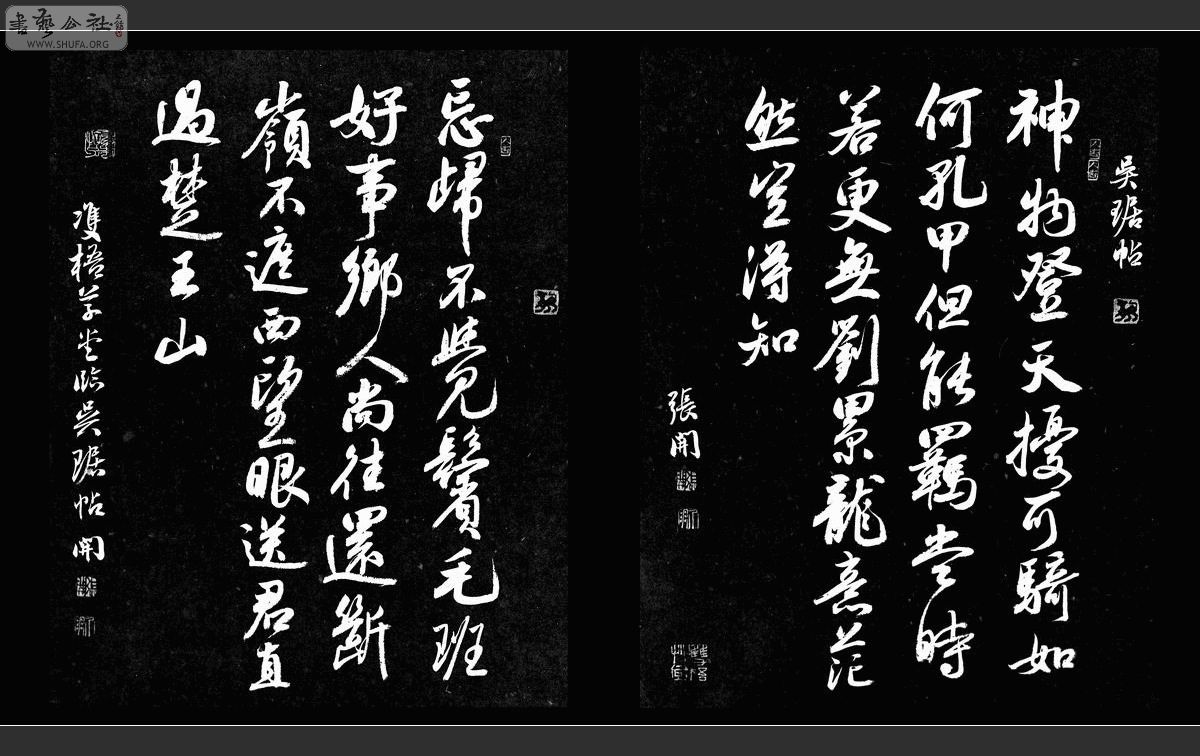 書藝公社
WWW.SHUFA.ORG
吳琚帖
神物登天擾可騎如
何孔甲但能羈當時
若更無劉累龍意茫
然豈得知
張開
忘歸不覺鬢毛班
好事鄉人尚往還斷
嶺不遮西望眼送君直
過楚王山
雙梧草堂臨吳琚帖 開